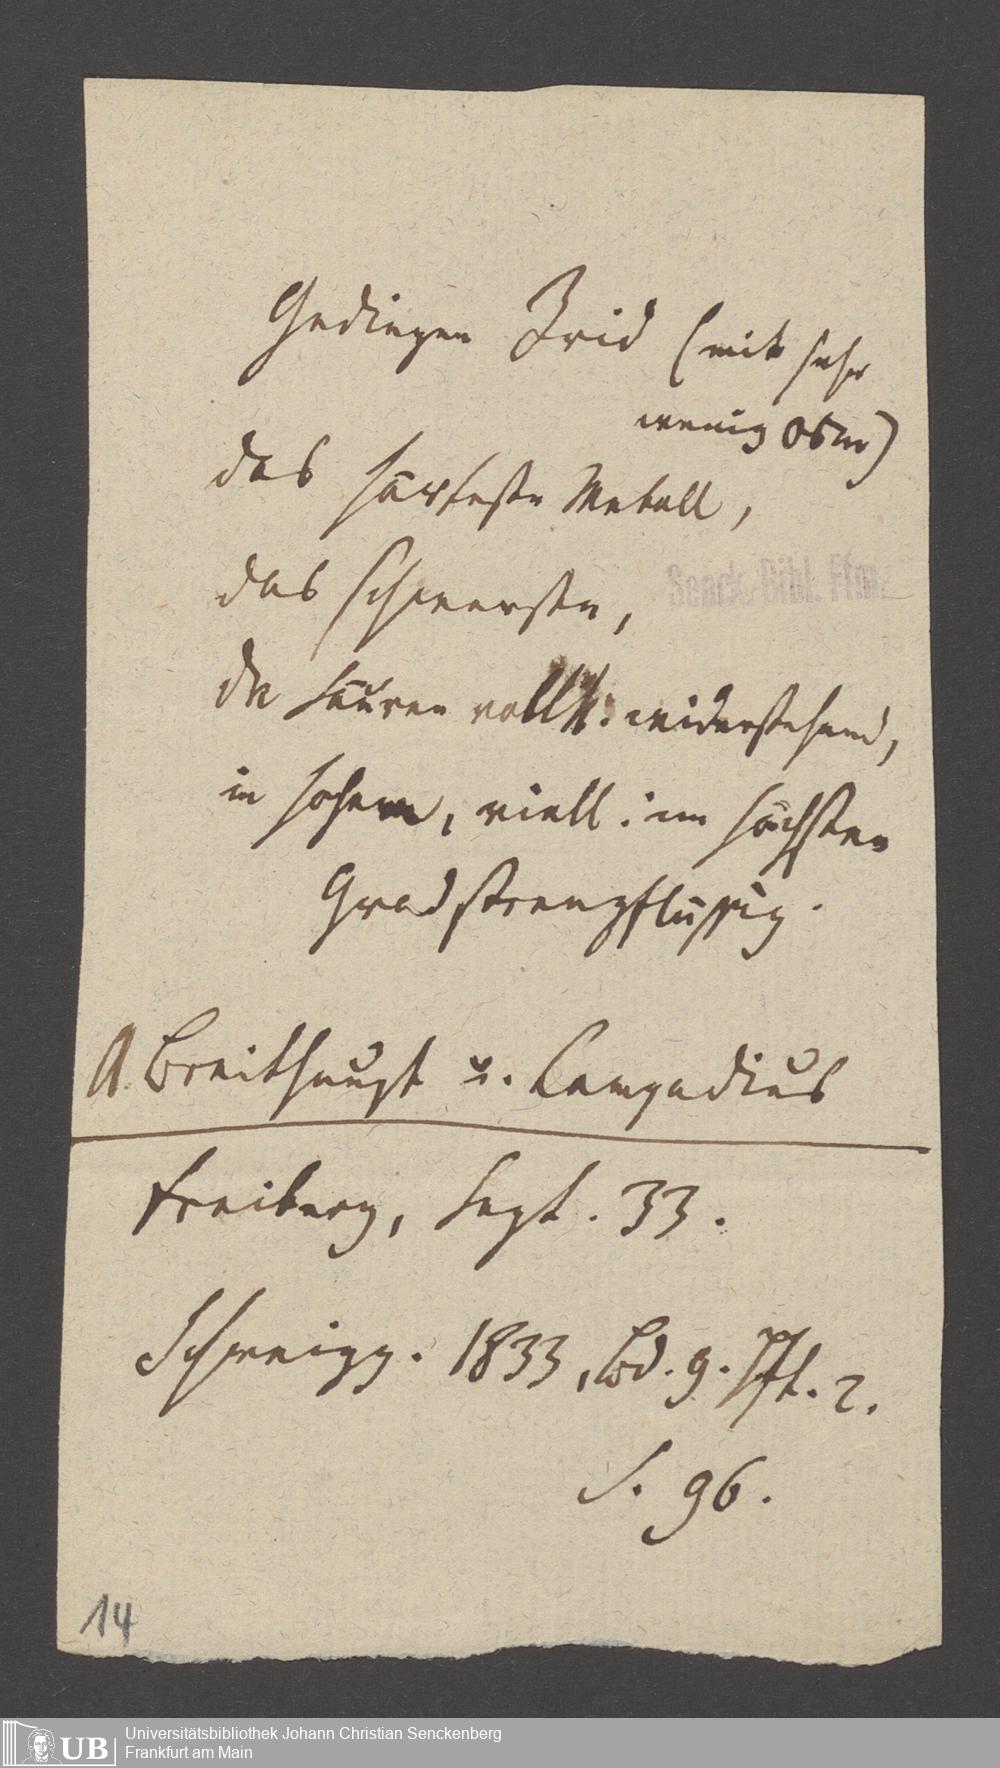 Gediegen Irid (mit sehr
wenig Osm)
das härteste Metall,
das schweerste,
den Säuren vollk: widerstehend,
in hohem, viell: im höchsten
Grad strengflüssig.
A. Breithaupt u. Lampadius
Freiberg, Sept. 33.
Schweigg. 1833, Bd. 9. Hft. 2.
S. 96.
Senck. Bibl. Ffm.
14
UB
Universitätsbibliothek Johann Christian Senckenberg
Frankfurt am Main